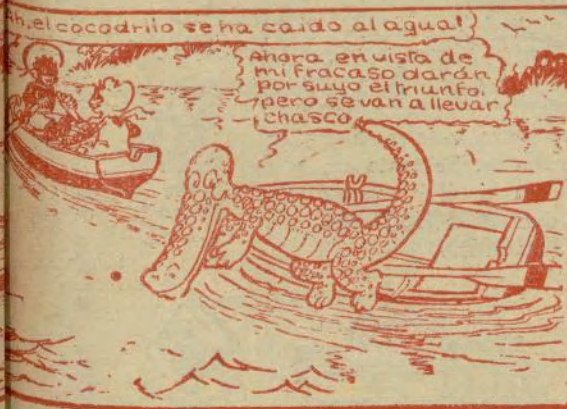 Ah, el cocodrilo se ha caido al agua!
Ahora en vista de
mi fracaso darán
por suyo el triunfo,
pero se van a llevar
chasco